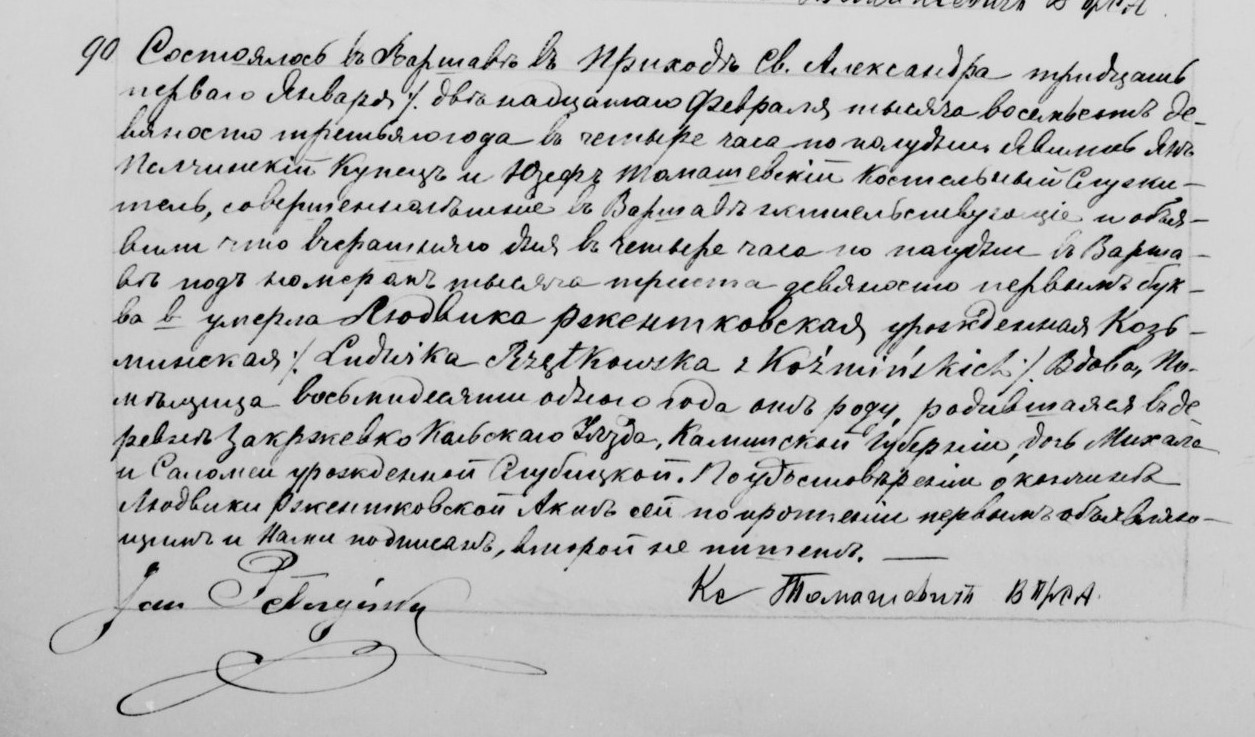 90 Состоялось въ Варшавѣ въ Приходѣ Св. Александра тридцать
перваго Января /. двѣнадцатаго Февраля тысяча восемьсотъ де-
вяносто третьяго года въ четыре часа по полудни. Явились Янъ
Пелчинскій Купецъ и Юзефъ Томашевскій Костельный Служи-
тель, совершеннолѣтніе въ Варшавѣ жительствующіе и объя-
вили что вчерашняго дня въ четыре часа по полудни въ Варша-
вѣ подъ номеромъ тысяча триста девяносто первымъ бук-
ва в умерла Людвика Ржентковская урожденная Козь-
минская /: Ludwika Rzętkowska z Koźmińskich :/ Вдова, По-
мѣщица восьмидесяти одного года отъ роду, родившаяся въ де
ревнѣ Закржевко Кольскаго Уѣзда, Калишской Губерніи, дочь Михала
и Саломеи урожденной Слубицкой. По удостовѣреніи о кончинѣ
Людвики Ржентковской Актъ сей по прочтеніи первымъ объявляю-
щимъ и Нами подписанъ, второй не пишетъ.
Jan
Кс Томашевичъ В П С А.